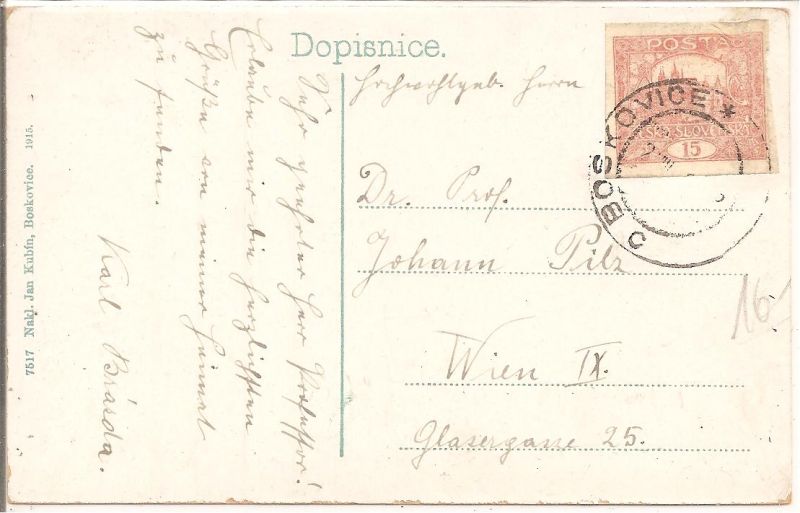 Dopisnice.
Sehr geehrter Herr Professor!
Erlaube mir die herzlichsten
Grüße aus meiner Heimat
zu senden.
Karl Brázda.
Hochwohlgeb. Herrn
Dr. Prof.
Johann Pilz
Wien IX.
Glasergasse 25.
POSTA
ČESKO-SLOVENSKÁ
15
BOSKOVICE *
16
7517 Nakl. Jan Kubín, Boskovice. 1915.